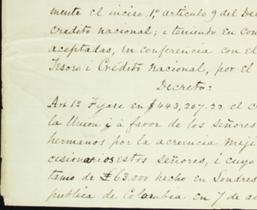 mente el inciso 1º artículo 9 del De
credito nacional; i teniendo en con
aceptadas, en conferencia con el
Tesoro i Crédito nacional, por el
Decreto:
Art 1º Fijase en $443,207.22 el c
la Union, i á favor de los Señores
hermanos por la acreencia Meji
cesionarios estos señores, i cuyo
tamo de £63.000 hecho en Londres
publica de Colombia en 7 de a